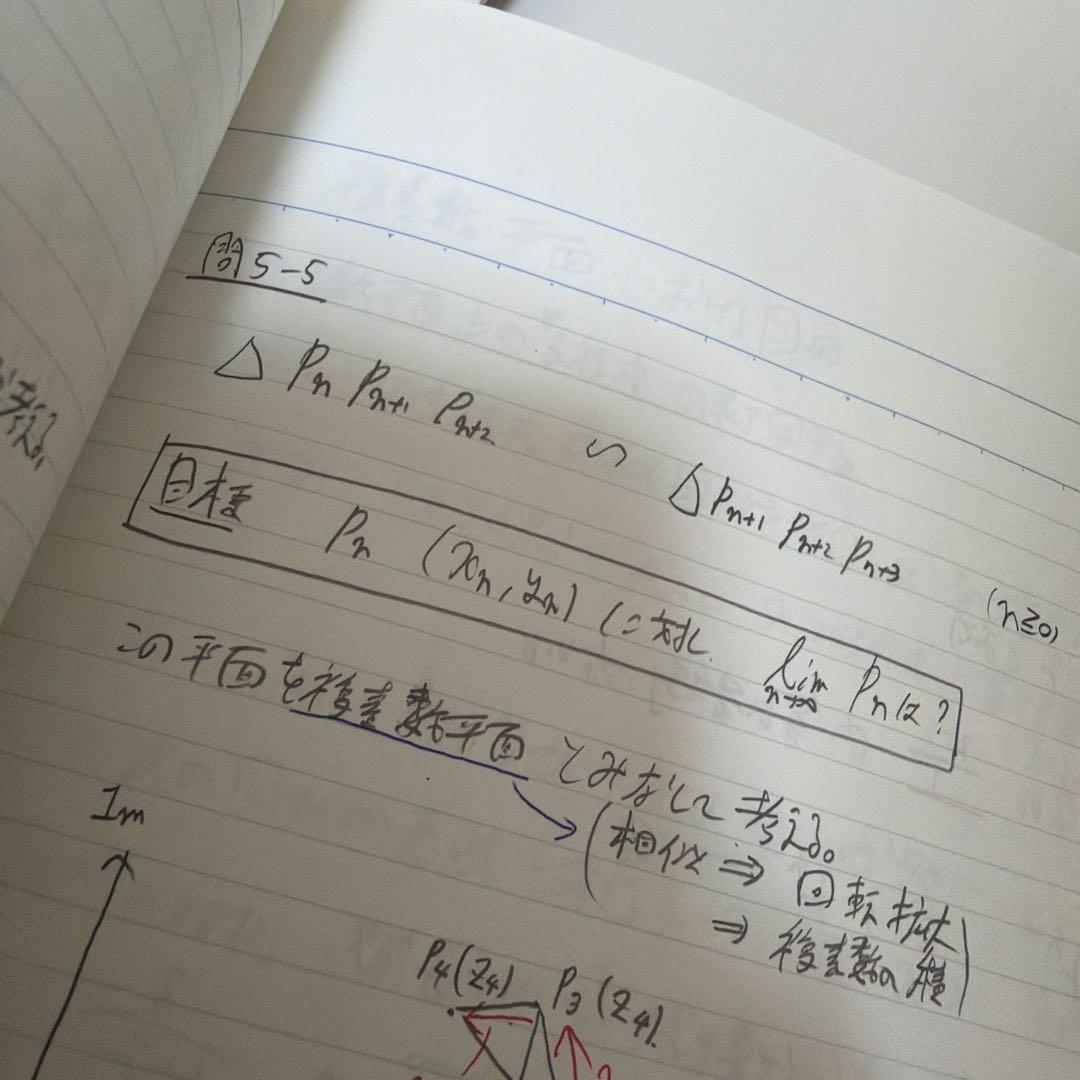 問5-5
△PnPn+1Pn+2 ∽ △Pn+1Pn+2Pn+3 (n≧0)
目標 Pn (xn, yn) に対し lim n→∞ Pnは?
この平面を複素数平面とみなして考える。
(相似 ⇒ 回転拡大
⇒ 複素数の積)
Im
P4(Z4) P3(Z4)